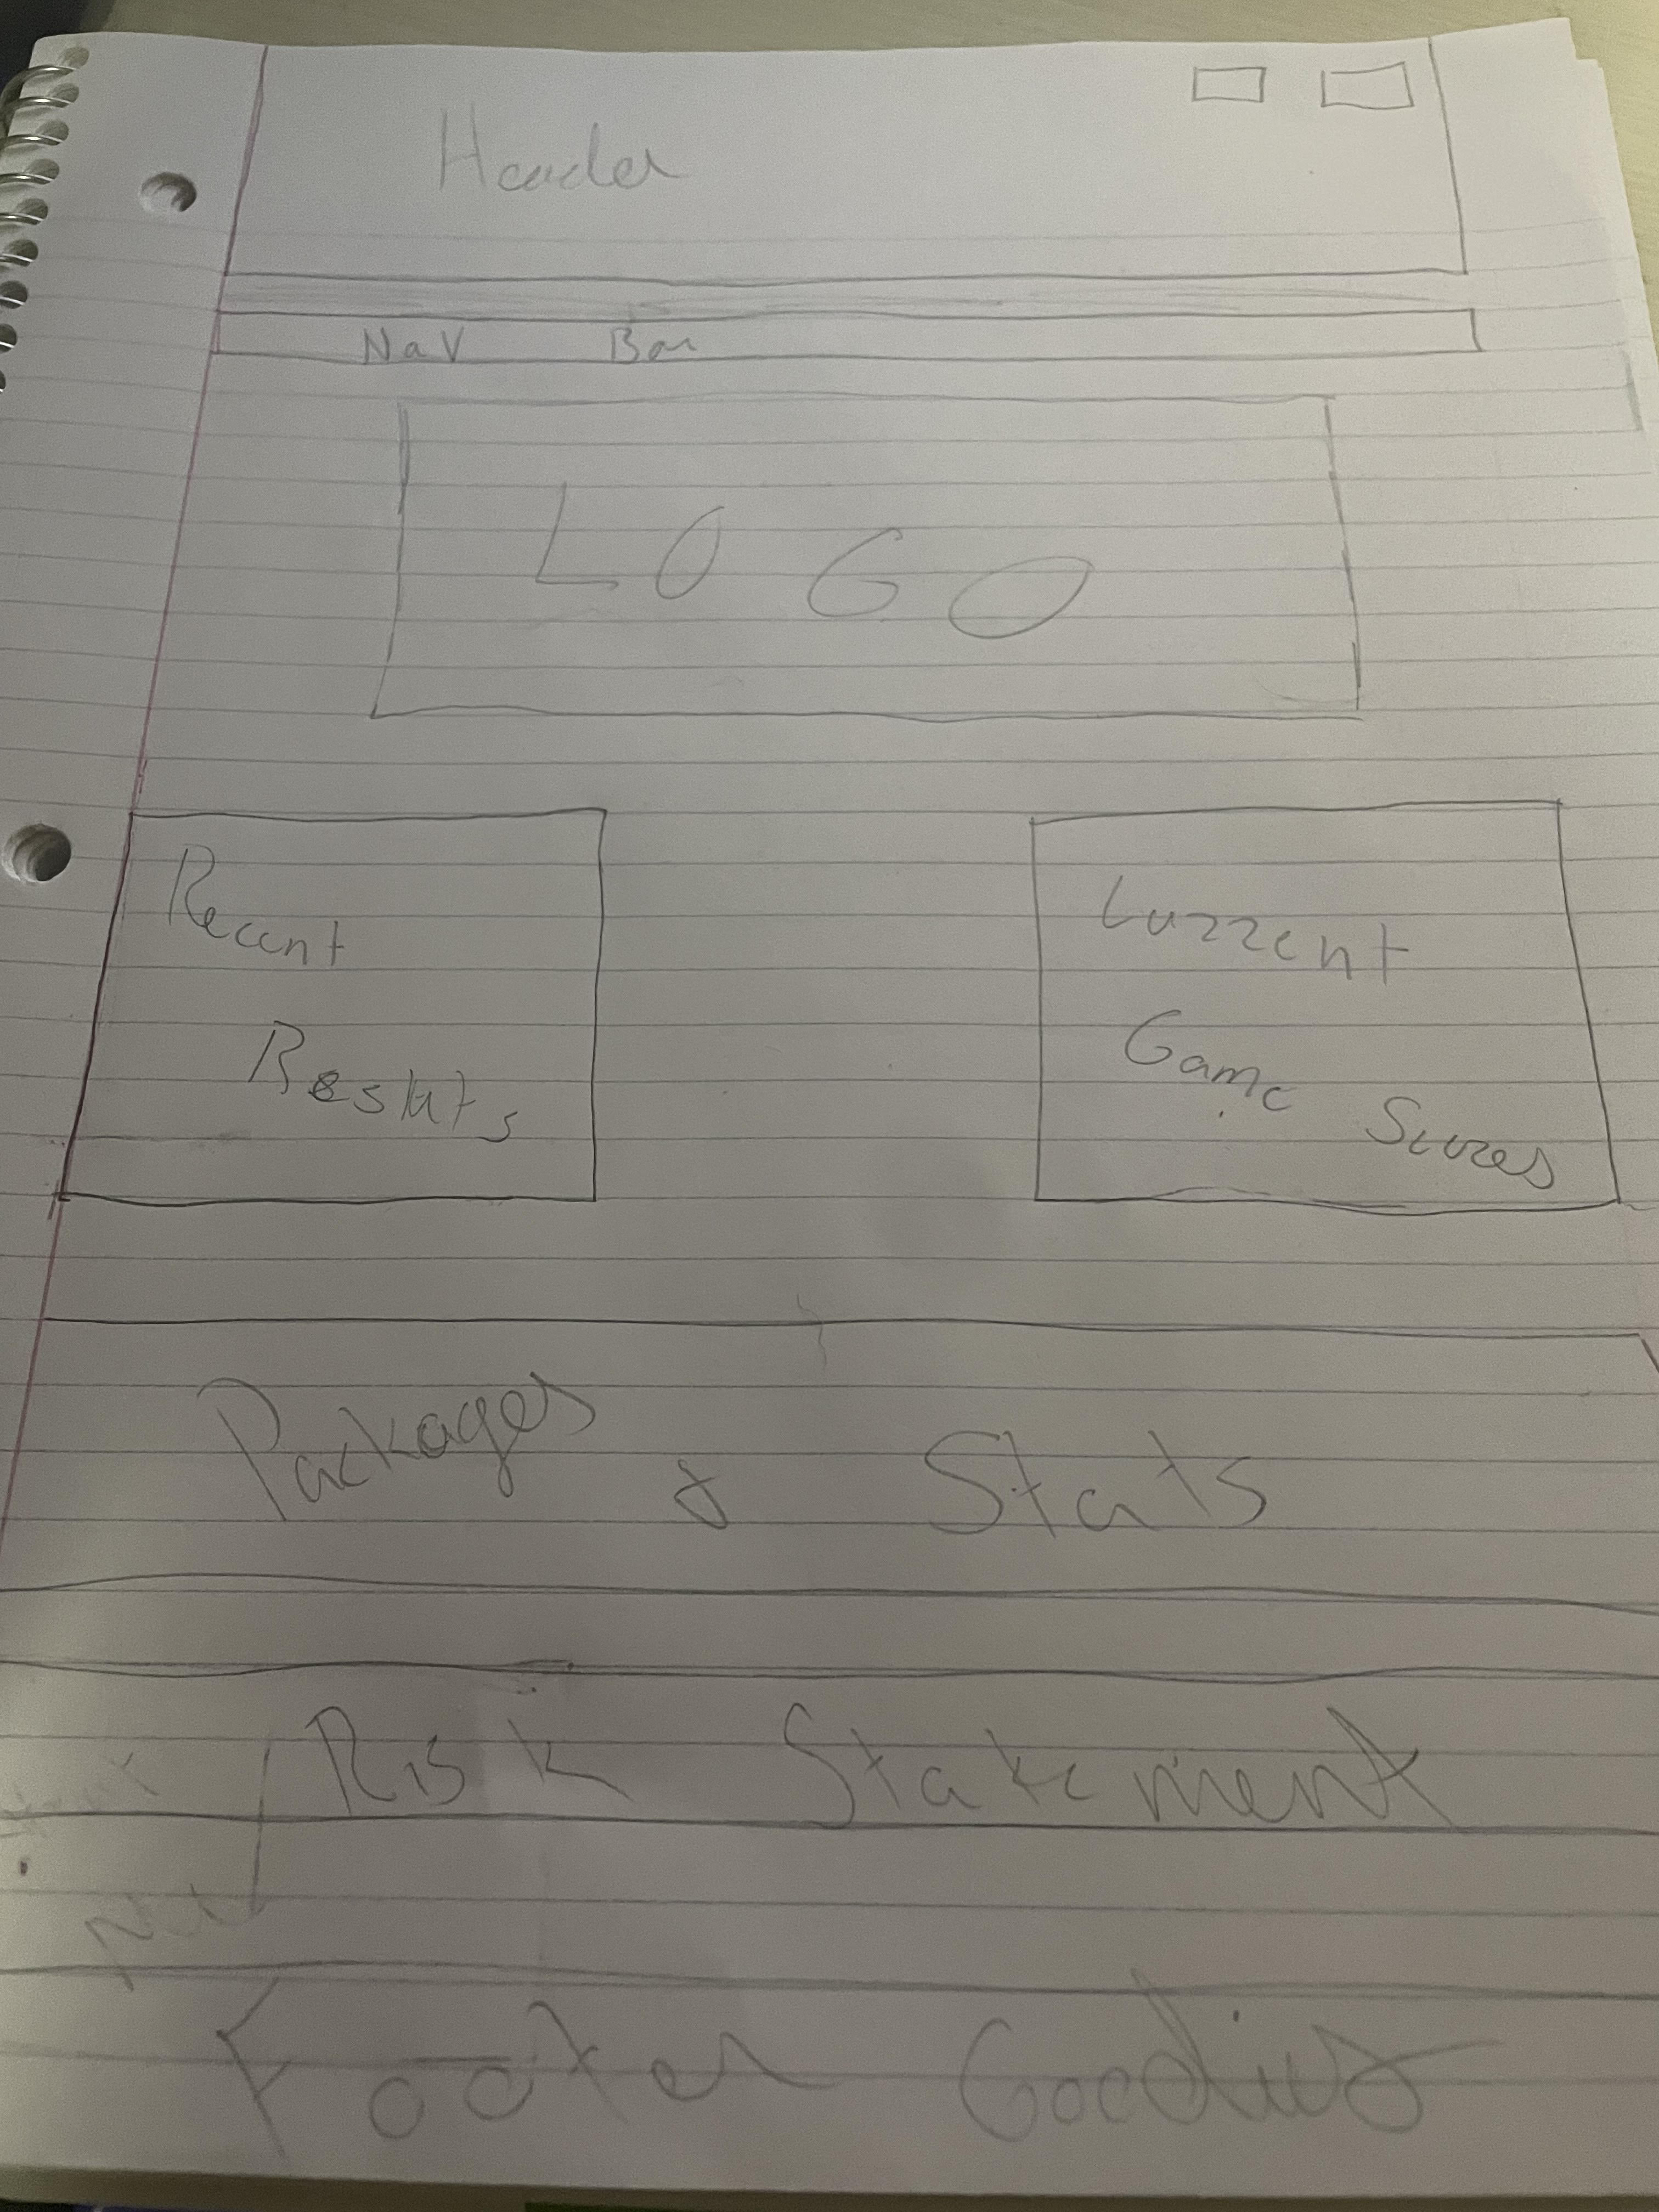 Header
Nav Bar
LOGO
Recent
Results
Current
Game Scores
Packages & Stats
Risk Statement
Footer Goodies